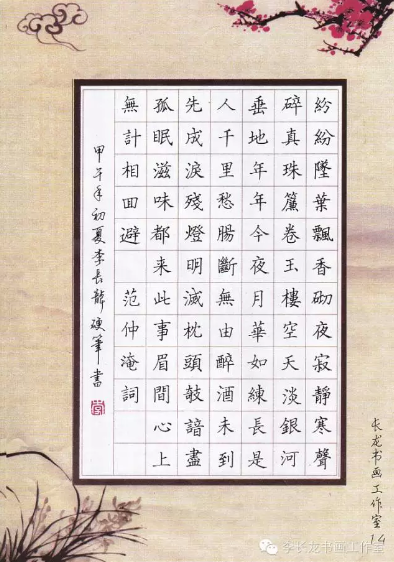 紛紛墜葉飄香砌夜寂靜寒聲
碎真珠簾卷玉樓空天淡銀河
垂地年年今夜月華如練長是
人千里愁腸斷無由醉酒未到
先成淚殘燈明滅枕頭敧諳盡
孤眠滋味都來此事眉間心上
無計相回避 范仲淹詞
甲午年初夏李長龍硬筆書
长龙书画工作室14
李长龙书画工作室